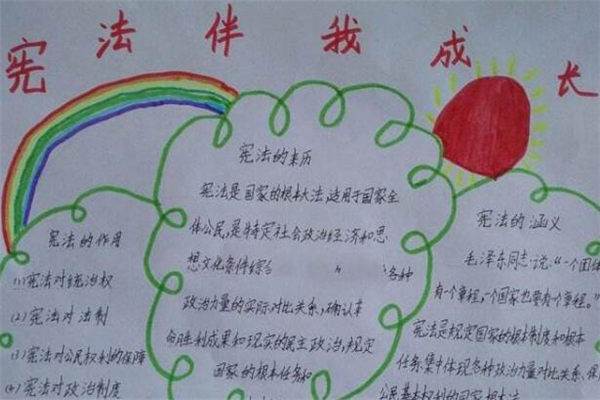 宪法伴我成长
宪法的作用
(1)宪法对统治权
(2)宪法对法制
(3)宪法对公民权利的保障
(4)宪法对政治制度
宪法的来历
宪法是国家的根本大法,适用于国家全
体公民,是特定社会政治经济和思
想文化条件综合 各种
政治力量的实际对比关系,确认革
命胜利成果和现实的民主政治,规定
国家的根本任务和
宪法的涵义
毛泽东同志说:“一个团体
有一个章程,一个国家也要有个章程。”
宪法是规定国家的根本制度和根本
任务,集中体现各种政治力量对比关系、保
公民基本权利的国家根本法